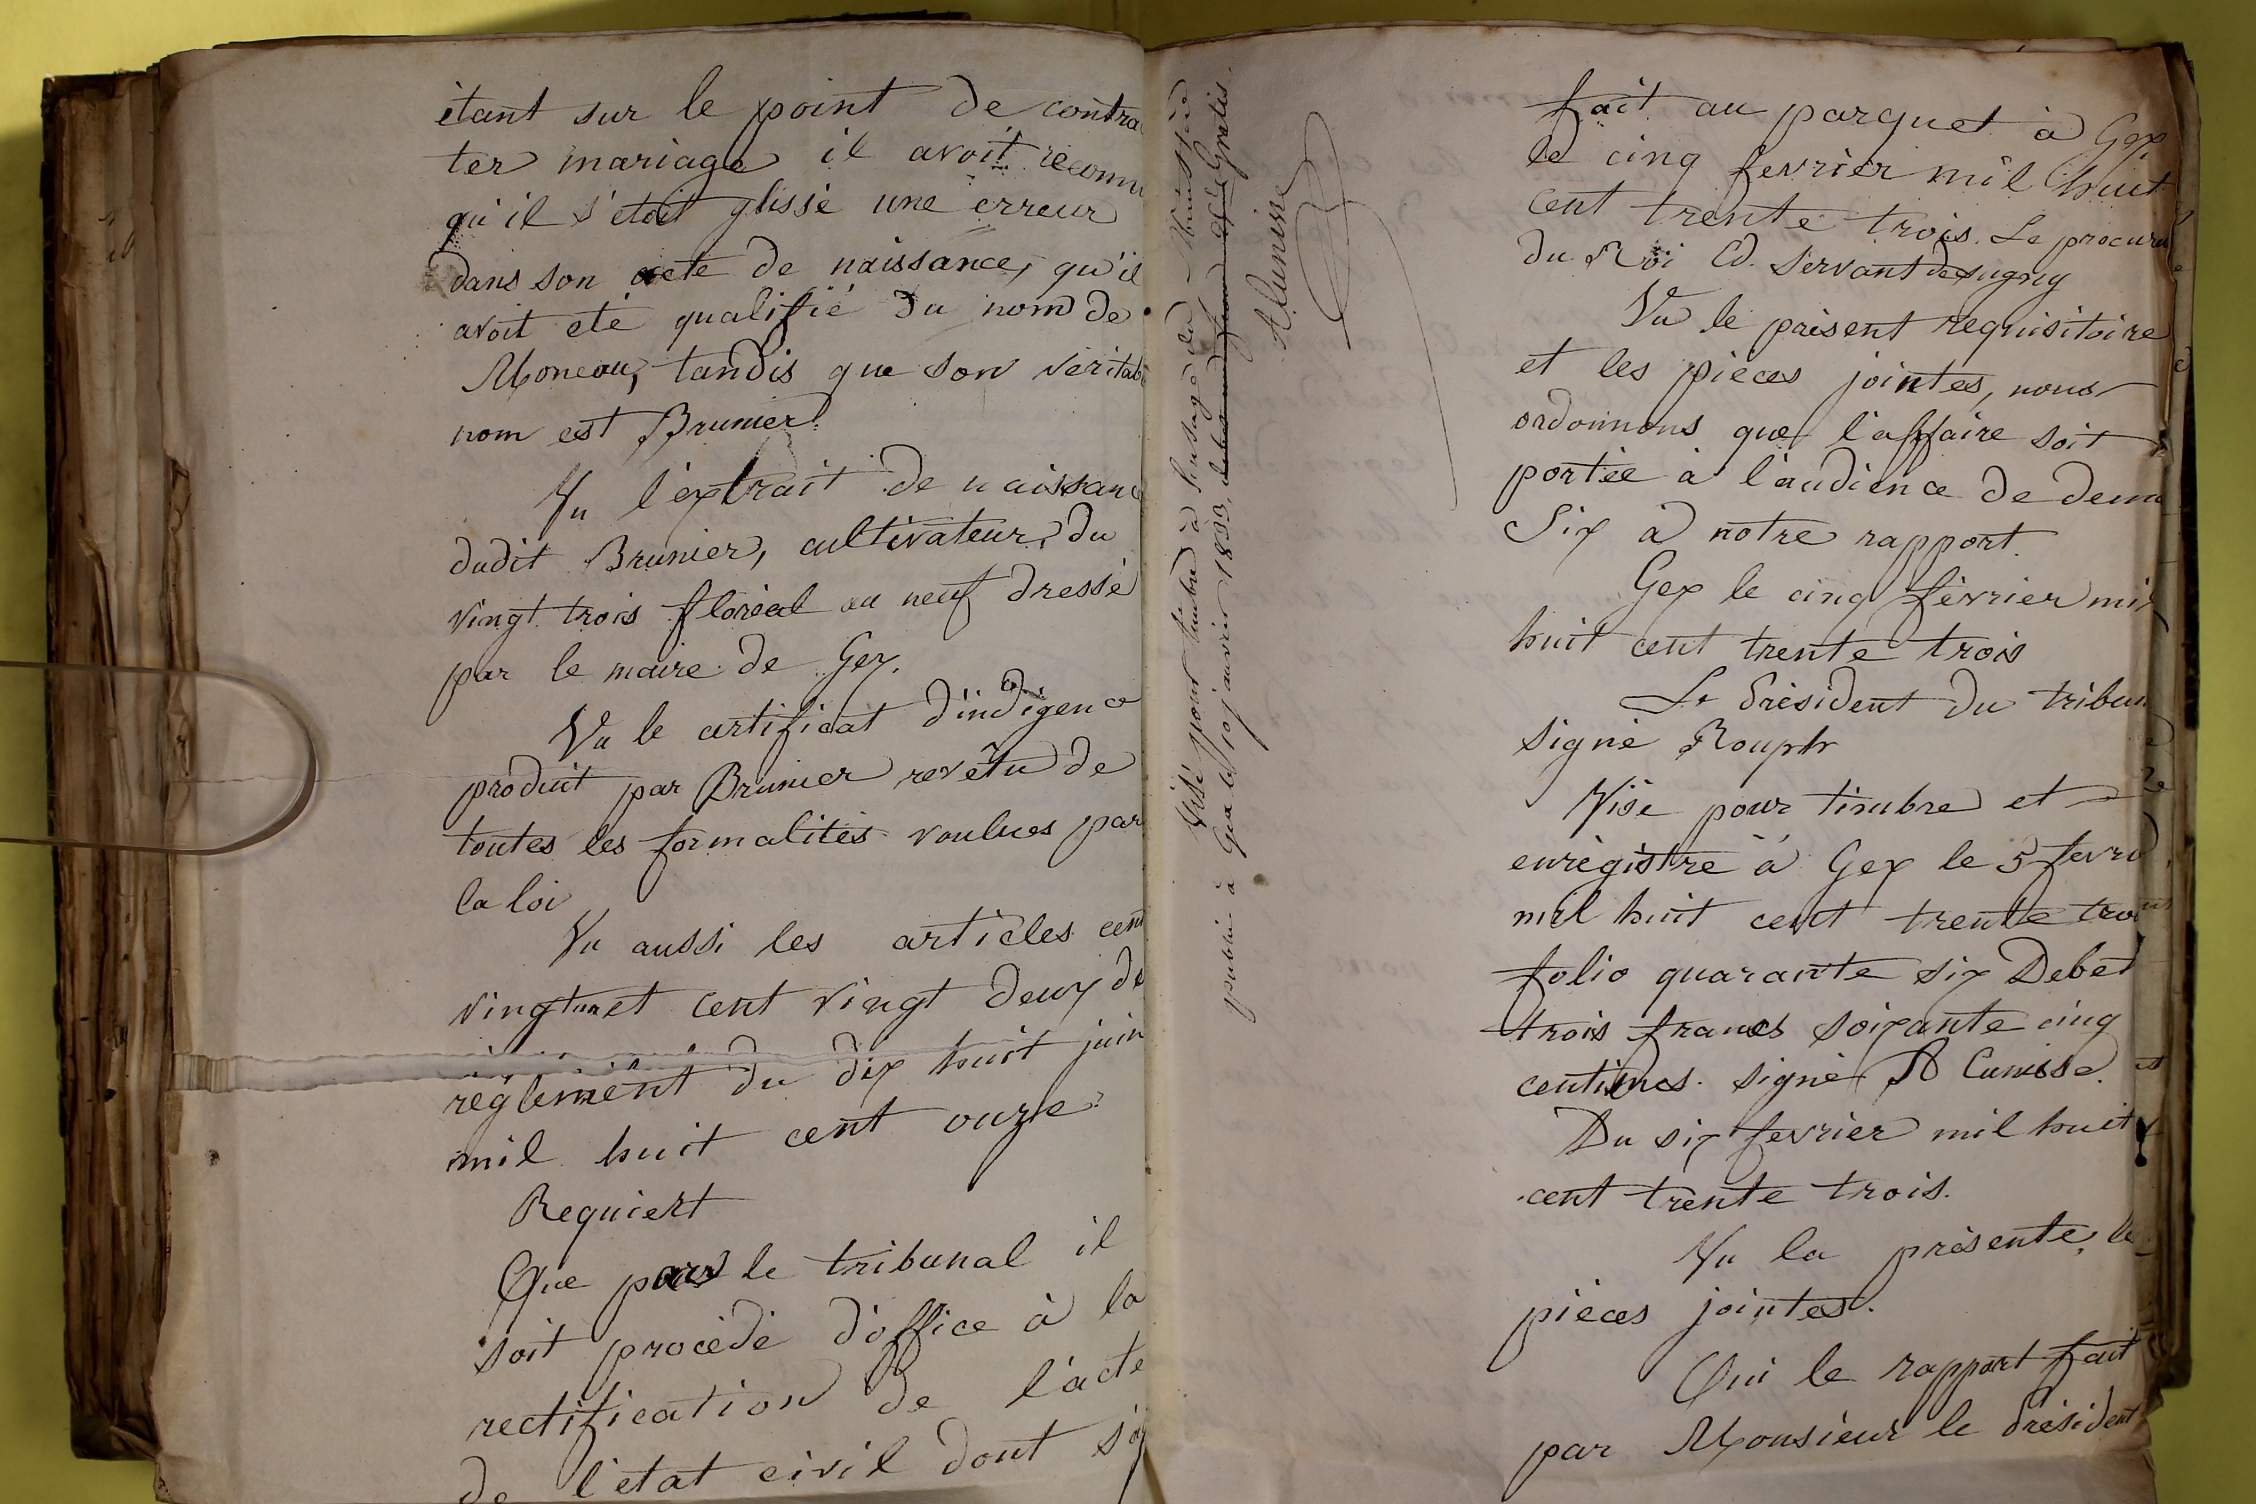 étant sur le point de contra
ter mariage il avoit reconnu
qu'il s'étoit glissé une erreur
dans son acte de naissance, qu'il
avoit été qualifié du nom de
Moneau, tandis que son véritab
nom est Brunier.
Vu l'extrait de naissance
dudit Brunier, cultivateur, du
vingt trois floréal an neuf dressé
par le maire de Gex.
Vu le certificat d'indigence
produit par Brunier revêtu de
toutes les formalités voulues par
la loi
Vu aussi les articles cent
vingt un et cent vingt deux de
règlement du dix huit juin
mil huit cent onze
Requiert
Que par le tribunal il
soit procédé d'office à la
rectification de l'acte
de l'état civil dont s'a
Visé pour timbre à l'usage du
publié à Gex le 19 janvier 1833, Gratis.
A. Cunisse
fait au parquet à Gex
le cinq fevrier mil huit
cent trente trois. Le procureu
du Roi Ed. Servant de Sugny
Vu le présent requisitoire
et les pièces jointes, nous
ordonnons que l'affaire soit
portée à l'audience de dema
Six à notre rapport.
Gex le cinq février mil
huit cent trente trois
Le Président du tribun
signé Rouph
Visé pour timbre et
enregistré à Gex le 5 fevri
mil huit cent trente troi
folio quarante six Debet
trois francs soixante cinq
centimes. signé A Cunisse.
Du six fevrier mil huit
cent trente trois.
Vu la présente, le
pièces jointes.
Oui le rapport fait
par Monsieur le Président